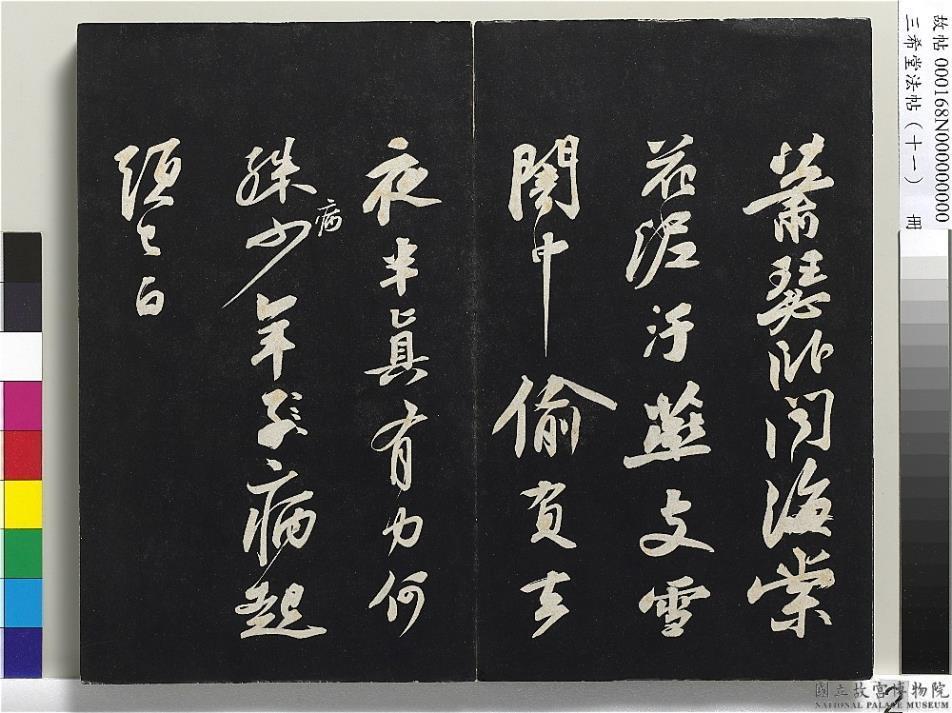 蕭瑟卧聞海棠
花泥汙燕支雪
闇中偷負去
夜半真有力何
殊少年子病起
病
頭已白
故帖 000168N000000000
三希堂法帖（十一） 冊
2
國立故宮博物院
NATIONAL PALACE MUSEUM